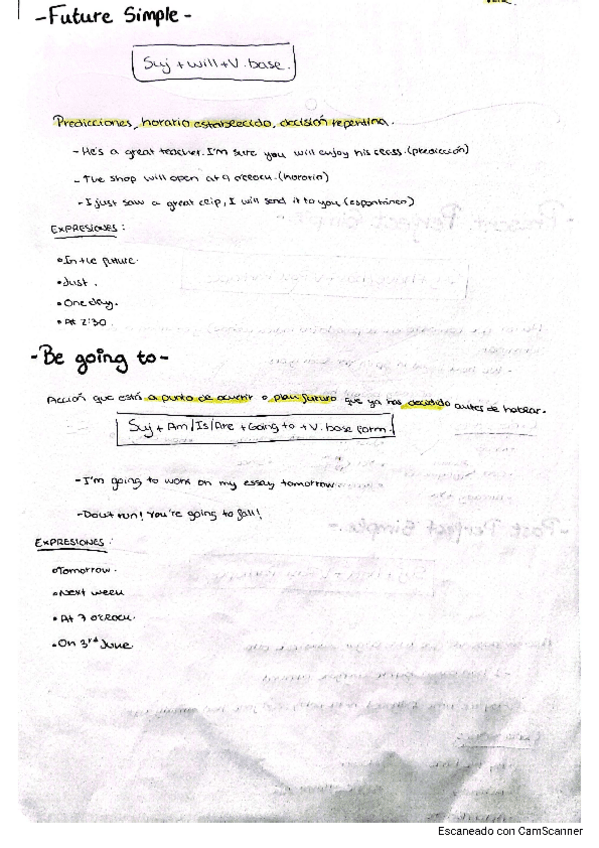 -Future Simple-
Suj + will + V. base.
Predicciones, horario establecido, decisión repentina.
- He's a great teacher. I'm sure you will enjoy his class. (predicción)
- The shop will open at 9 o'clock. (horario)
- I just saw a great clip, I will send it to you (espontáneo)
EXPRESIONES:
• In the future.
• Just.
• One day.
• At 2:30.
-Be going to-
Acción que está a punto de ocurrir o plan futuro que ya has decidido antes de hablar.
Suj + Am/Is/Are + Going to + V. base form.
- I'm going to work on my essay tomorrow.
- Don't run! You're going to fall!
EXPRESIONES:
• Tomorrow.
• Next week
• At 7 o'clock.
• On 3rd June.
Escaneado con CamScanner